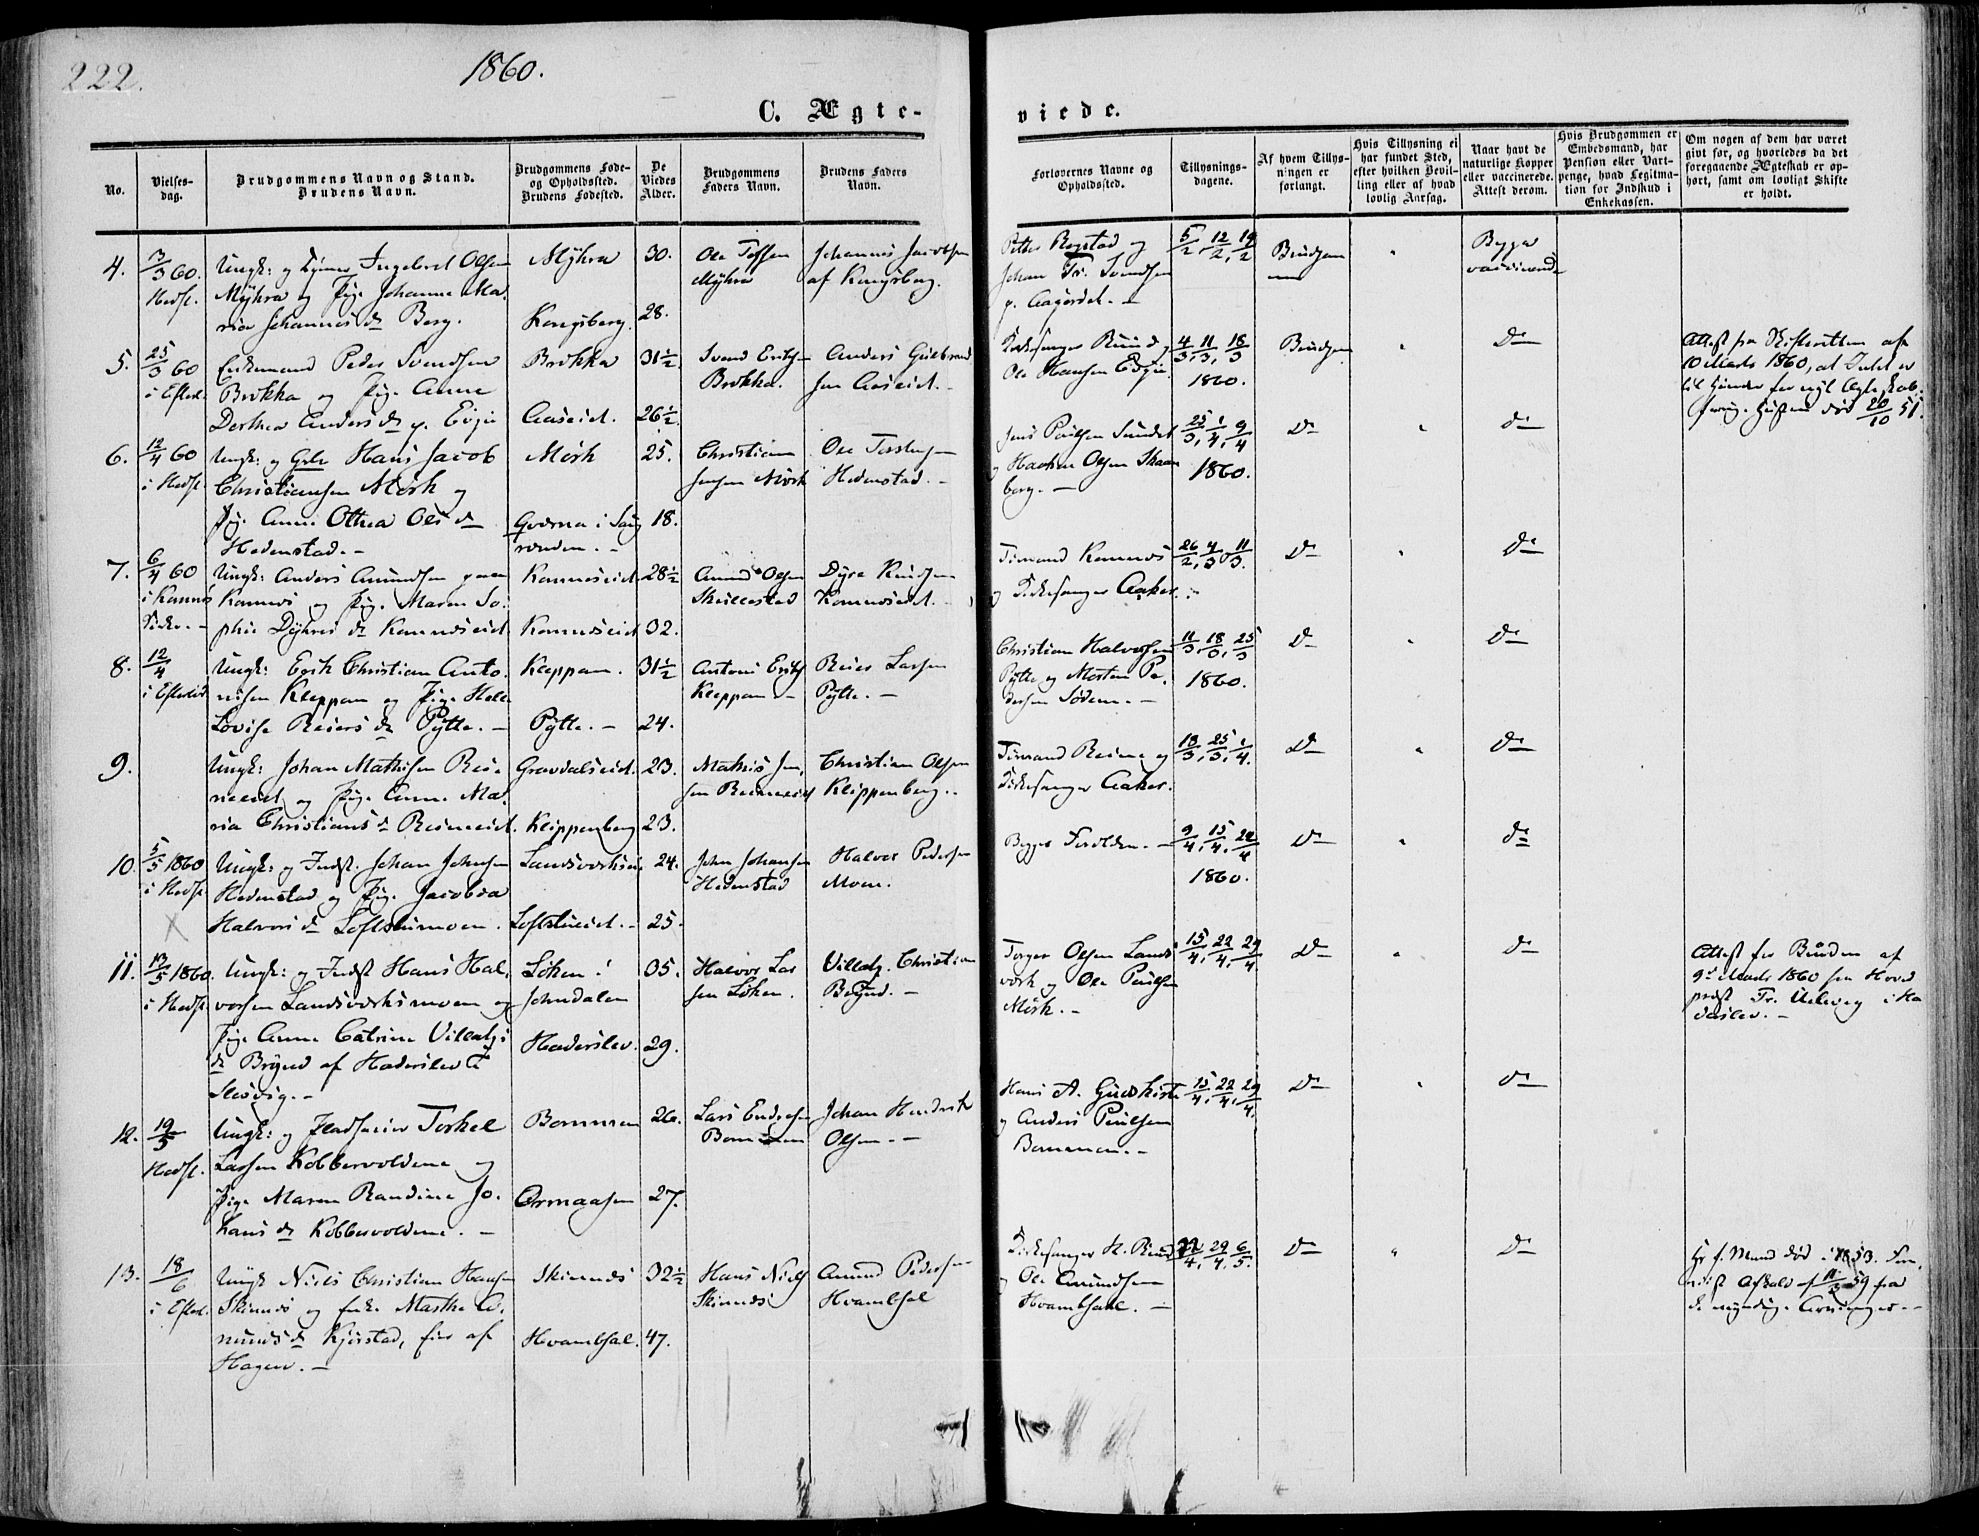 222.
1860.
C. Ægte-
viede.
No.
Vielses-
dag.
Brudgommens Navn og Stand.
Brudens Navn.
Brudgommens Føde-
og Opholdssted.
Brudens Fødested.
De
Viedes
Alder.
Brudgommens
Faders Navn.
Brudens Faders
Navn.
Forlovernes Navne og
Opholdssted.
Tillysnings-
dagene.
Af hvem Tillys-
ningen er
forlangt.
Hvis Tillysning ei
har fundet Sted,
efter hvilken Bevil-
ling eller af hvad
lovlig Aarsag.
Naar havt de
naturlige Kopper
eller vaccinerede.
Attest derom.
Hvis Brudgommen er
Embedsmand, har
Pension eller Vart-
penge, hvad Legitima-
tion for Indskud i
Enkekassen.
Om nogen af dem har været
givt før, og hvorledes da det
foregaaende Ægteskab er op-
hørt, samt om lovligt Skifte
er holdt.
4. 3/3 60. Hedst.
Ungk: og Ingebret Olsen
Myhra og Pige Johanne Ma-
ria Johannes dr Berg.
Myhra
Kongsberg.
30.
28.
Ole
Myhra
Johannes Jacobsen
af Kongsberg.
Petter Rogstad og
Johan Fr. Svendsen
5/2, 12/2, 19/2
Brudgom
Begge
vaccinerede
5. 25/3 60
i Efted.
Enkemand Peder Svendsen
Brokka og Pige Anne
Dorthea Anders dr p. Evju
Brokka
Aaseid.
31½.
26½.
Svend Eriksen
Brokka.
Anders Gulbrand
sen Aaseid.
Kirkesanger Ruud og
Ole Hansen Evju.
4/3, 11/3, 18/3
1860.
Brudgom
Do
Attest fra Skifteretten af
10 Marts 1860, at Intet er
til Hinder for nyt Ægteskab.
20/10 51.
6. 12/4 60
i Hedst.
Ungk: og Hans Jacob
Christiansen Mørk og
Pige Anne Othea Ols dr
Hedenstad.
Mørk
25.
18.
Christian
Jensen Mørk
Ole
Hedenstad.
Jens Paulsen Sundet
og Olsen Skaan
berg.
25/3, 1/4, 9/4
1860.
Do
Do
7. 6/4 60
i Komnes
Kirke.
Ungk: Anders Amundsen
Komnes og Pige Maren So-
phie Dyhres dr Komnæseid
Komnæseid
Komnæseid
28½
32.
Amund Olsen
Skullestad
Dyre Knudsen
Komnæseid.
Komnes
og Kirkesanger Aaker.
26/2, 4/3, 11/3.
Do
Do
8. 12/4
i Eftelød
Ungk: Erik Christian Anto-
nisen Kleppan og Pige Hele
Lovise Reiers dr Pytte.
Kleppan.
Pytte.
31½
24.
Antoni Eriks
Kleppan
Reier Larsen
Pytte.
Christian Halvorsen
Pytte og Morten Pe-
dersen Sødem.
11/3, 18/3, 25/3
1860.
Do
Do
9.
Ungk: Johan Mathisen Rei-
meeid og Pige Anne Ma-
ria Christians dr Reimeeid.
Gravdalseid.
Klippenberg
23.
23.
Mathis Jen-
sen Reimeeid
Christian Olsen
Klippenberg.
Reime og
Kirkesanger Aaker.
18/3, 25/3, 1/4.
Do
Do
10. 5/5 1860
i Hedst.
Ungk: og Indst: Johan Johnsen
Hedenstad og Pige Jacobea
Halvors dr Loftstumoen.
Loftstueid.
24.
25.
John Johansen
Hedenstad
Halvor Pedersen
Moen.
Begges Forældre.
9/4, 15/4, 22/4
1860.
Do
Do
11. 13/5 1860.
i Hedst.
Ungk: og Indst Hans Hal-
vorsen Landsværksmoen og
Pige Anne Catrine Villatz
dr Brynd af Haderslev i
Slesvig.
Løken i
Jondalen
Haderslev.
35.
29.
Halvor Lar
sen Løken.
Villatz. Christian
Brynd.
Torger Olsen Lands
værk og Ole Paulsen
Mørk.
15/4, 22/4, 29/4
Do
Do
Attest for Bruden af
9de Marts 1860 fra Hoved
præst Fr. i Ha
derslev.
12. 19/5
Hedst.
Ungk: og Torkel
Larsen Kobbervoldene og
Pige Maren Randine Jo-
hans dr Kobbervoldene.
Bommen
Ormaasen
26.
27.
Lars Endresen
Bommen
Johan Henrik
Olsen.
Hans A. Gudskist
og Anders Paulsen
Bommen.
15/4, 22/4, 29/4.
Do
Do
13. 18/6
i Efted.
Ungk Niels Christian Hansen
Skinnes og Enke Marthe A-
munds dr Kjørstad, før af
Hagen.
Skinnes
Hvambsal.
32½
47.
Hans Niels
Skinnes
Amund Pedersen
Hvambsal
Kirkesanger H. Ruud
og Ole Amundsen
Hvambsahl.
22/4, 29/4, 6/5.
Do
Do
Mand død i 1853.
59 fra
de myndige Arvinger.